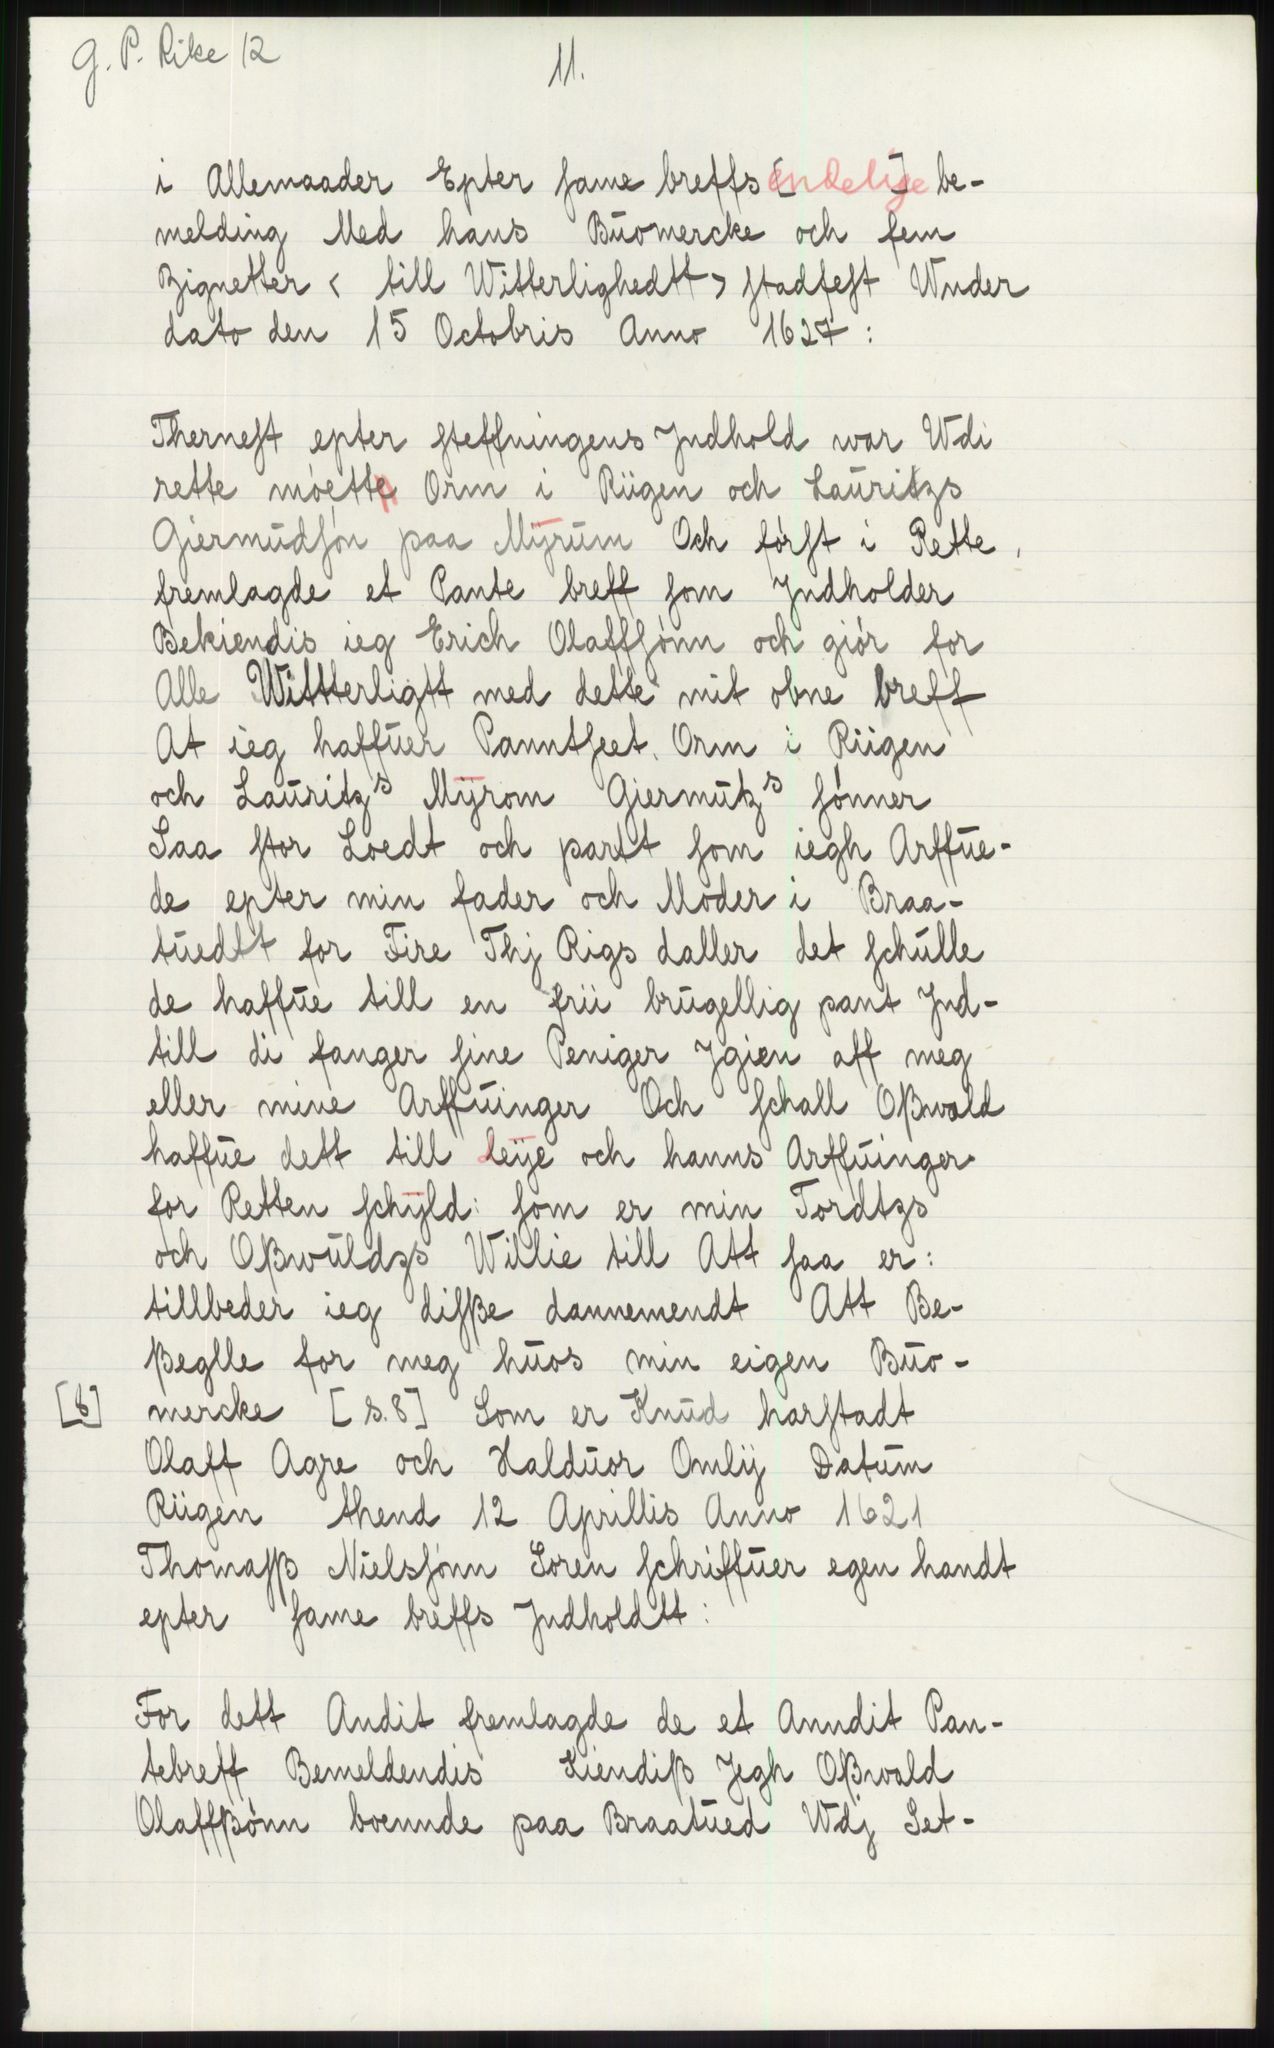 G. P. Rike 12
11.
i Allemaader Epter same breffs [endelige] be-
melding Med hans Buomercke och fem
Zignetter < till Witterlighedtt > stadfest Wnder
dato den 15 Octobris Anno 1627:
Thernest epter steffningens Jndhold war Wdi
rette móette Orm i Rügen och Lauritzs
Giermudsón paa Mÿrum Och fórst i Rette,
fremlagde et Pante breff som Jndholder
Bekiendis ieg Erich Olaffsónn och giór for
Alle Wittterligtt med dette mit obne breff
At ieg haffuer Panntseet. Orm i Riigen
och Lauritzs Mÿrom Giermutzs sónner
Saa stor Loedt och partt som iegh Arffue-
de epter min fader och Moder i Braa-
tuedtt for Fire Thj Rigs daller det schulle
de haffue till en frii brugellig pant Jnd-
till di fanger sine Peniger Jgien aff meg
eller mine Arffuinger Och schall Oßwold
haffue dett till leÿe och hanns Arffuinger
for Retten schÿld: som er min Tordtzs
och Oßwuldzs Willie till Att saa er:
tillbeder ieg disße dannemendt Att Be-
ßeglle for meg huos min eigen Buo-
[8] mercke [s. 8] Som er Knud harstadt
Olaff Agre och Halduor Omlij Datum
Riigen thend 12 Aprillis Anno 1621
Thomasß Nielssónn Soren schriffuer egen handt
epter same breffs Jndholdtt:
For dett Andit fremlagde de et Anndit Pan-
tebreff Bemeldendis Kiendiß Jegh Oßwald
Olaffßónn boennde paa Braatued Wdj Set-